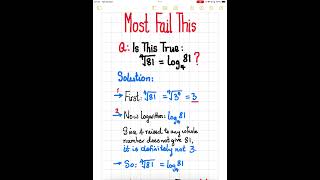 Most Fail This
Q: Is This True:
⁴√81 = log₄81 ?
Solution:
1
→ First: ⁴√81 = ⁴√3⁴ = 3
2
→ Now logarithm: log₄81
Since 4 raised to any whole
number does not give 81,
it is definitely not 3.
→ So: ⁴√81 = log₄81